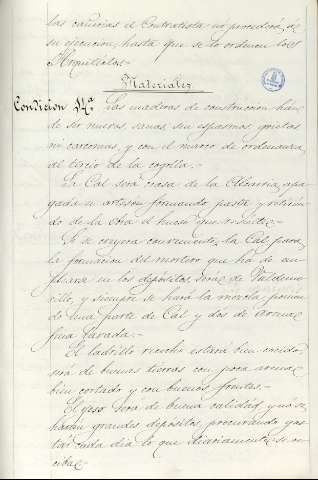 las cañerias el Contratista no procederá, á
su ejecucion, hasta que se lo ordenen los S
Arquitectos.-
Materiales.
Condicion 14.ª Las maderas de construccion han
de ser nuevas, sanas, sin espasmos, grietas
ni carcomas, y con el marco de ordenanza
al tercio de la cogolla.-
La Cal será crasa de la Alcarria, apa-
gada en artesón formando pasta y retiran-
do de la obra el hueso que resulte.-
Si se creyera conveniente, la Cal para
la formacion del mortero que ha de em-
plearse en los depósitos, será de Valdemo-
rillo, y siempre se hará la mezcla, ponien-
do una parte de Cal y dos de arena
fina lavada.-
El ladrillo recocho estará bien cocido,
será de buenas tierras con poca arena,
bien cortado y con buenos frentes.-
El yeso será de buena calidad, y no se
harán grandes depósitos, procurando gas-
tar cada dia lo que diariamente se re-
ciba.-